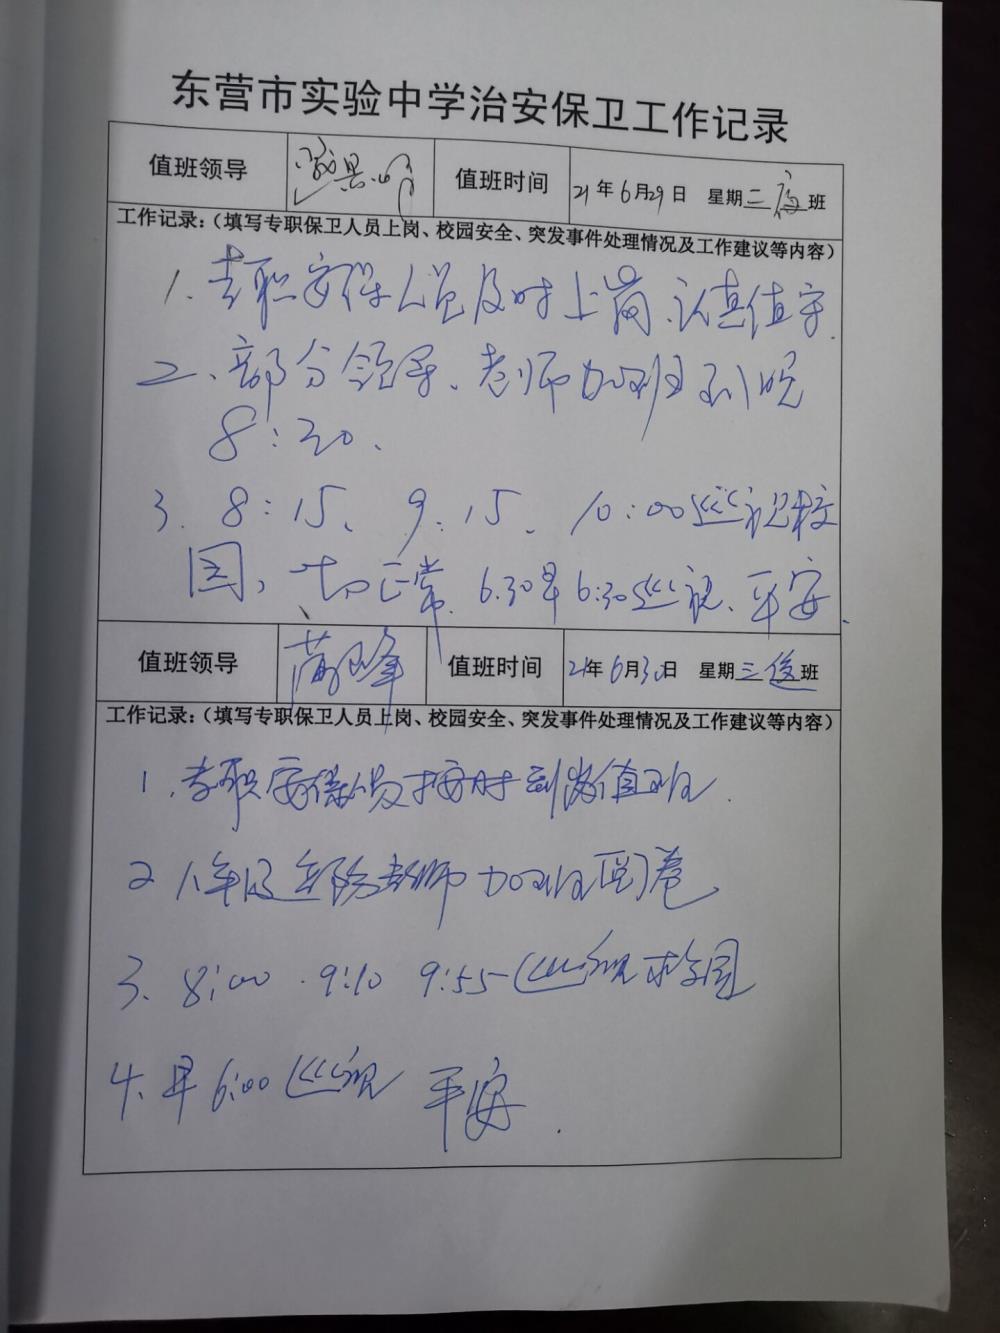 东营市实验中学治安保卫工作记录
值班领导 值班时间 21年6月29日 星期二夜班
工作记录:(填写专职保卫人员上岗、校园安全、突发事件处理情况及工作建议等内容)
1. 专职安保人员及时上岗、认真值守.
2、部分领导、老师加班到晚
8:20、
3. 8:15、9:15、10:00巡视校
园,一切正常. 6.30早6:30巡视、平安.
值班领导 值班时间 21年6月30日 星期三夜班
工作记录:(填写专职保卫人员上岗、校园安全、突发事件处理情况及工作建议等内容)
1.专职安保人员按时到岗值班.
2 年级 老师加班阅卷
3、8:00 .9:10 9:55巡视校园
4、早6:00巡视 平安.